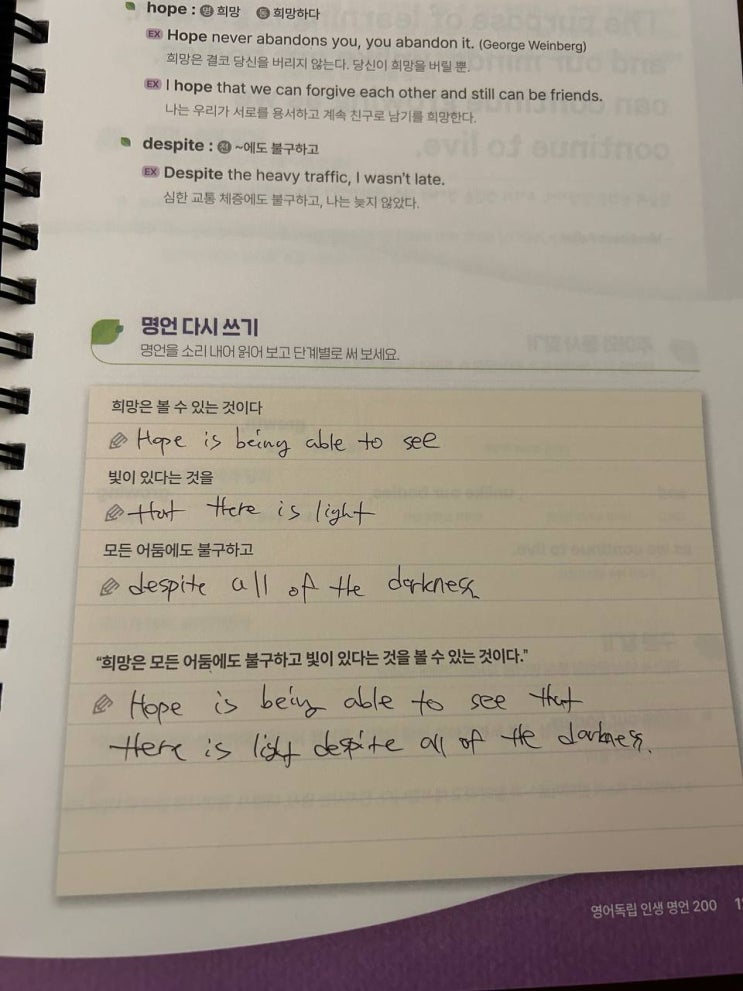 hope : 명 희망 동 희망하다
EX Hope never abandons you, you abandon it. (George Weinberg)
희망은 결코 당신을 버리지 않는다. 당신이 희망을 버릴 뿐.
EX I hope that we can forgive each other and still can be friends.
나는 우리가 서로를 용서하고 계속 친구로 남기를 희망한다.
despite : 전 ~에도 불구하고
EX Despite the heavy traffic, I wasn't late.
심한 교통 체증에도 불구하고, 나는 늦지 않았다.
명언 다시 쓰기
명언을 소리 내어 읽어 보고 단계별로 써 보세요.
희망은 볼 수 있는 것이다
Hope is being able to see
빛이 있다는 것을
that there is light
모든 어둠에도 불구하고
despite all of the darkness
"희망은 모든 어둠에도 불구하고 빛이 있다는 것을 볼 수 있는 것이다."
Hope is being able to see that
there is light despite all of the darkness.
영어독립 인생 명언 200